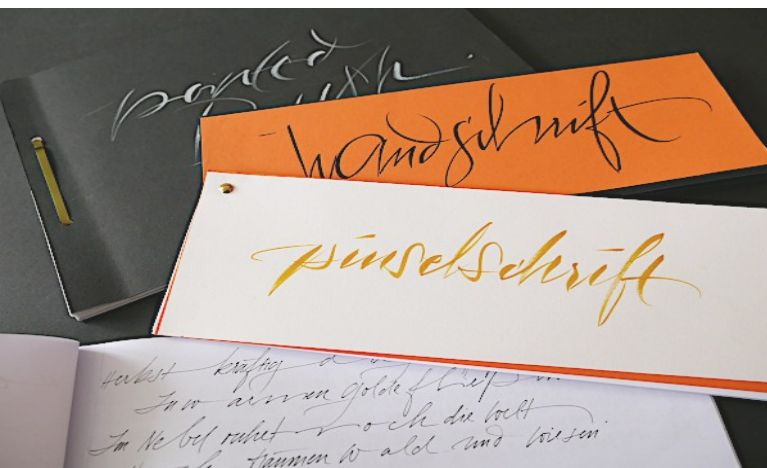 pointed
handschrift
pinselschrift
Herbst kräftig
In warmen Golde fließen
Im Nebel ruhet noch die Welt
träumen Wald und Wiesen